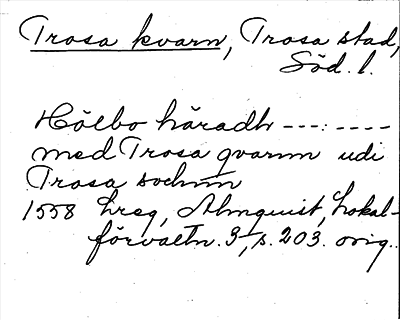 Trosa kvarn, Trosa stad,
Söd. l.
Hölbo häradh ---:----
med Trosa qvarnn udi
Trosa sochnn
1558 hreg, Almquist, Lokal-
förvaltn. 3, s. 203. orig.